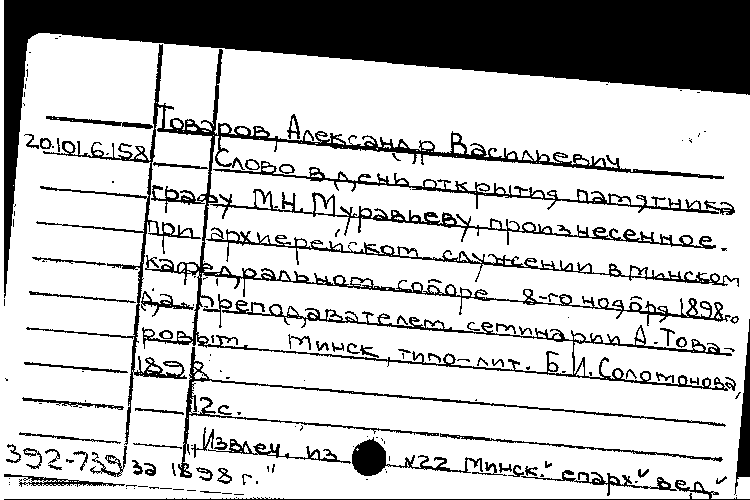 Товаров, Александр Васильевич
20.101.6.158 Слово в день открытия памятника
графу М.Н. Муравьеву, произнесенное.
при архиерейском служении в минском
кафедральном соборе 8-го ноября 1898го
да. преподавателем семинарии А. Това-
ровым. Минск, типо-лит. Б.И. Соломонова,
1898.
12с.
Извлеч. из №22 Минск." епарх." вед."
392-739 за 1898 г."